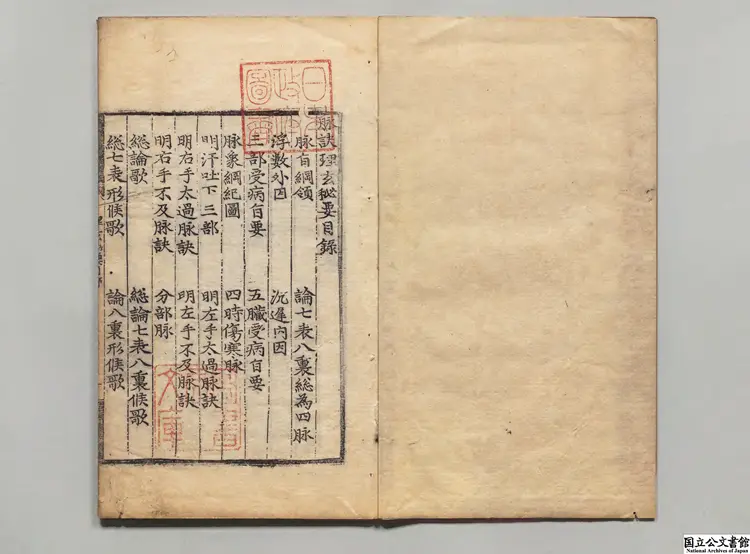 脉訣理玄秘要目錄
脉旨綱領 論七表八裏総為四脉
浮數外因 沉遲內因
三部受病旨要 五臓受病旨要
脉象綱紀圖 四時傷寒脉
明汗吐下三部 明左手太過脉訣
明右手太過脉訣 明左手不及脉訣
明右手不及脉訣 分部脉
総論歌 総論七表八裏候歌
総七表形候歌 論八裏形候歌
日本政府圖書
国立公文書館
National Archives of Japan